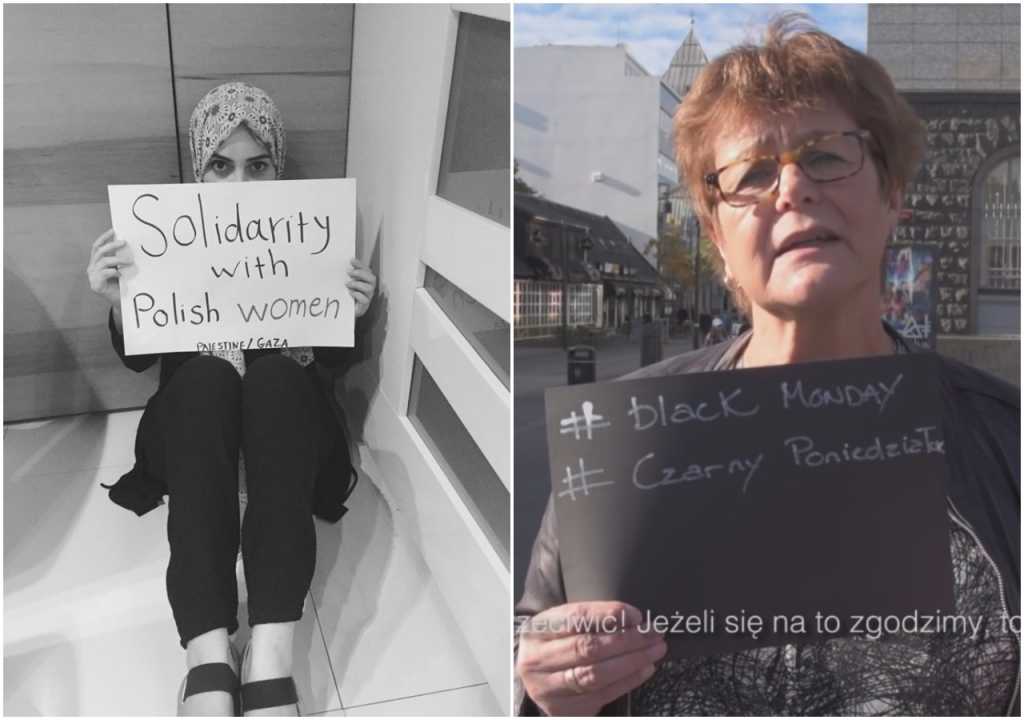 Solidarity
with
Polish women
PALESTINE/GAZA
# black MONDAY
# Czarny Poniedziałek
zeciwić! Jeżeli się na to zgodzimy, to